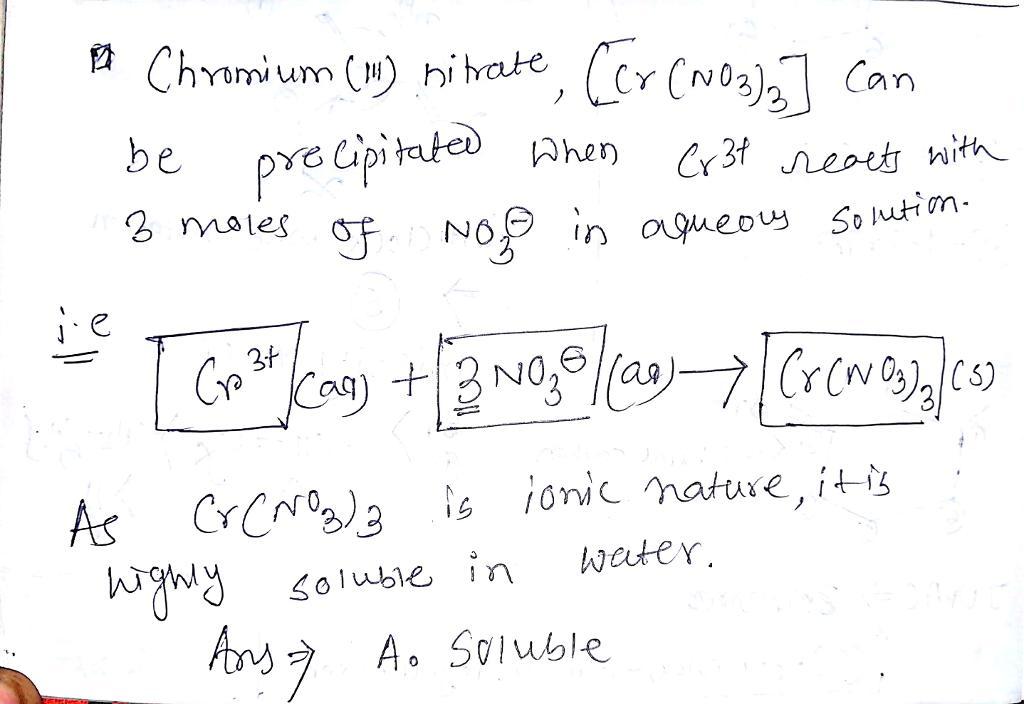 Chromium (III) nitrate, [Cr(NO3)3] can
be precipitated when Cr3+ reacts with
3 moles of NO3⊖ in aqueous solution.
i.e
Cr3+ (aq) + 3 NO3⊖ (aq) → Cr(NO3)3 (s)
As Cr(NO3)3 is ionic nature, it is
highly soluble in water.
Ans ⇒ A. Soluble